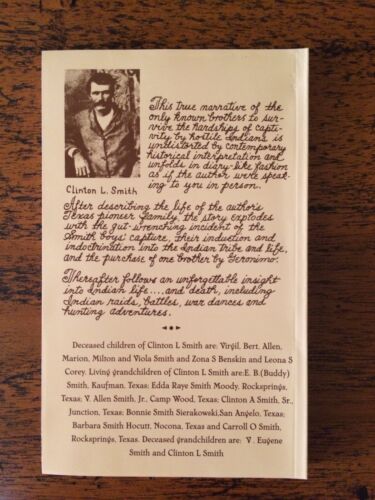 Clinton L. Smith
This true narrative of the
only known brothers to sur-
vive the hardships of capti-
vity by hostile Indians is
undistorted by contemporary
historical interpretation and
unfolds in diary-like fashion
as if the author were speak-
ing to you in person.
After describing the life of the author's
Texas pioneer family, the story explodes
with the gut-wrenching incident of the
Smith boys' capture, their induction and
indoctrination into the Indian Tribe and life,
and the purchase of one brother by Geronimo.
Thereafter follows an unforgettable insight
into Indian life....and death, including
Indian raids, battles, war dances and
hunting adventures.
Deceased children of Clinton L Smith are: Virgil, Bert, Allen,
Marion, Milton and Viola Smith and Zona S Benskin and Leona S
Corey. Living grandchildren of Clinton L Smith are:E. B.(Buddy)
Smith, Kaufman, Texas; Edda Raye Smith Moody, Rocksprings,
Texas; V. Allen Smith, Jr., Camp Wood, Texas; Clinton A Smith, Sr.,
Junction, Texas; Bonnie Smith Sierakowski,San Angelo, Texas;
Barbara Smith Hocutt, Nocona, Texas and Carroll O Smith,
Rocksprings, Texas. Deceased grandchildren are: V. Eugene
Smith and Clinton L Smith